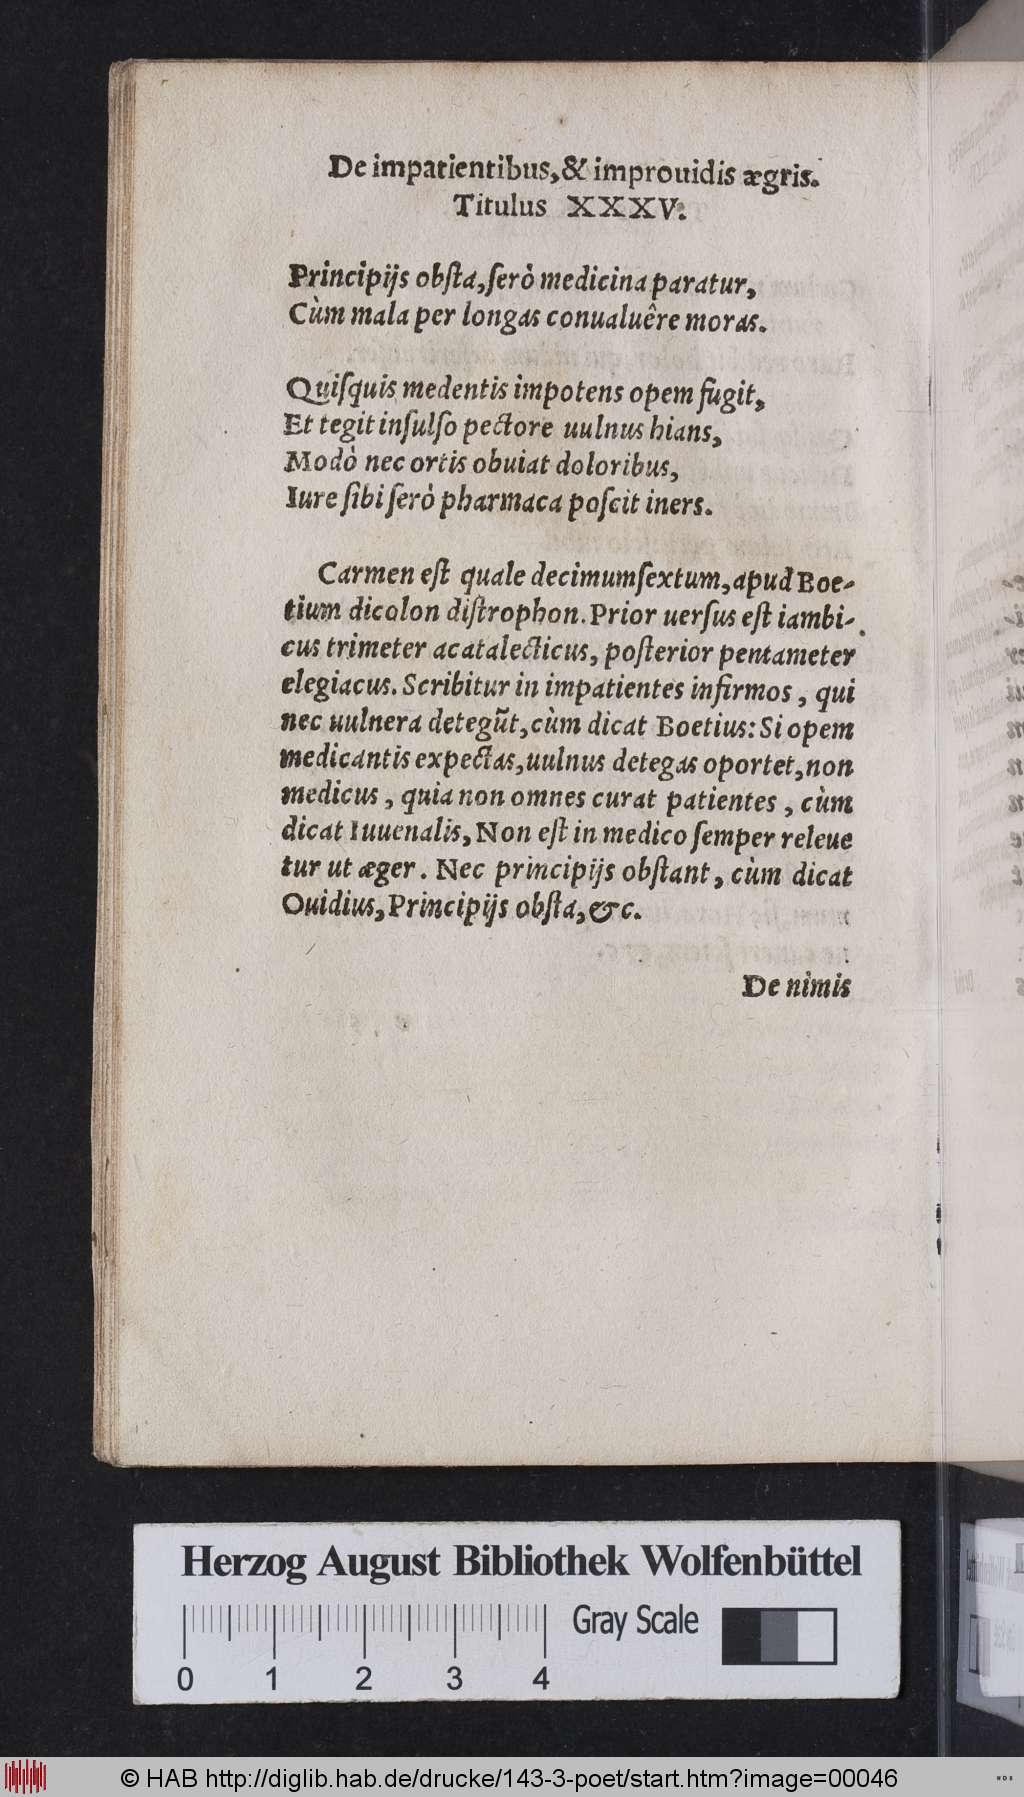 De impatientibus, & improuidis ægris.
Titulus XXXV.
Principijs obſta, ſerò medicina paratur,
Cùm mala per longas conualuêre moras.
Quiſquis medentis impotens opem fugit,
Et tegit inſulſo pectore uulnus hians,
Modò nec ortis obuiat doloribus,
Iure ſibi ſerò pharmaca poſcit iners.
Carmen eſt quale decimumſextum, apud Boe-
tium dicolon diſtrophon. Prior uerſus eſt iambi-
cus trimeter acatalecticus, poſterior pentameter
elegiacus. Scribitur in impatientes infirmos, qui
nec uulnera detegũt, cùm dicat Boetius: Si opem
medicantis expectas, uulnus detegas oportet, non
medicus, quia non omnes curat patientes, cùm
dicat Iuuenalis, Non eſt in medico ſemper releue
tur ut æger. Nec principijs obſtant, cùm dicat
Ouidius, Principijs obſta, &c.
De nimis
Herzog August Bibliothek Wolfenbüttel
Gray Scale
0 1 2 3 4
© HAB http://diglib.hab.de/drucke/143-3-poet/start.htm?image=00046